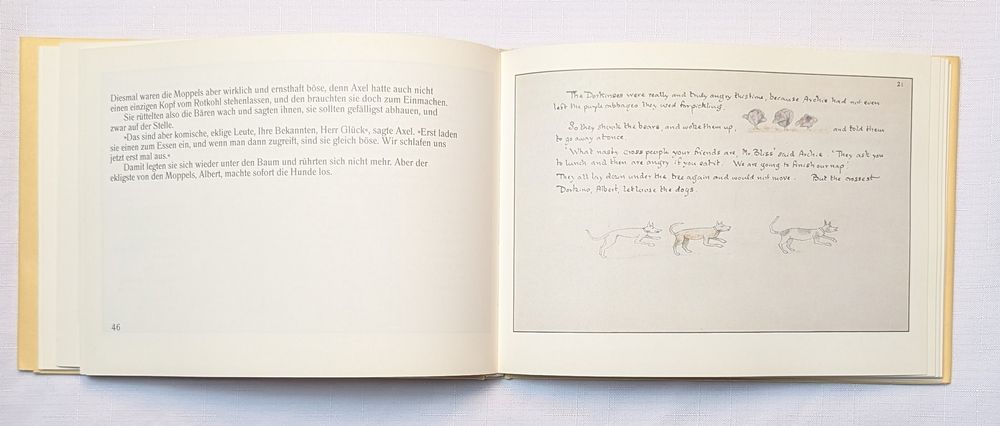 Diesmal waren die Moppels aber wirklich und ernsthaft böse, denn Axel hatte auch nicht
einen einzigen Kopf vom Rotkohl stehenlassen, und den brauchten sie doch zum Einmachen.
Sie rüttelten also die Bären wach und sagten ihnen, sie sollten gefälligst abhauen, und
zwar auf der Stelle.
»Das sind aber komische, eklige Leute, Ihre Bekannten, Herr Glück«, sagte Axel. »Erst laden
sie einen zum Essen ein, und wenn man dann zugreift, sind sie gleich böse. Wir schlafen uns
jetzt erst mal aus.«
Damit legten sie sich wieder unter den Baum und rührten sich nicht mehr. Aber der
ekligste von den Moppels, Albert, machte sofort die Hunde los.
46
21
The Dorkinses were really and truly angry this time, because Archie had not even
left the purple cabbages they used for pickling.
So they shook the bears, and woke them up, and told them
to go away at once.
'What nasty cross people your friends are, Mr. Bliss' said Archie. 'They ask you
to lunch and then are angry if you eat it. We are going to finish our nap'
They all lay down under the tree again and would not move. But the crossest
Dorkins, Albert, let loose the dogs.